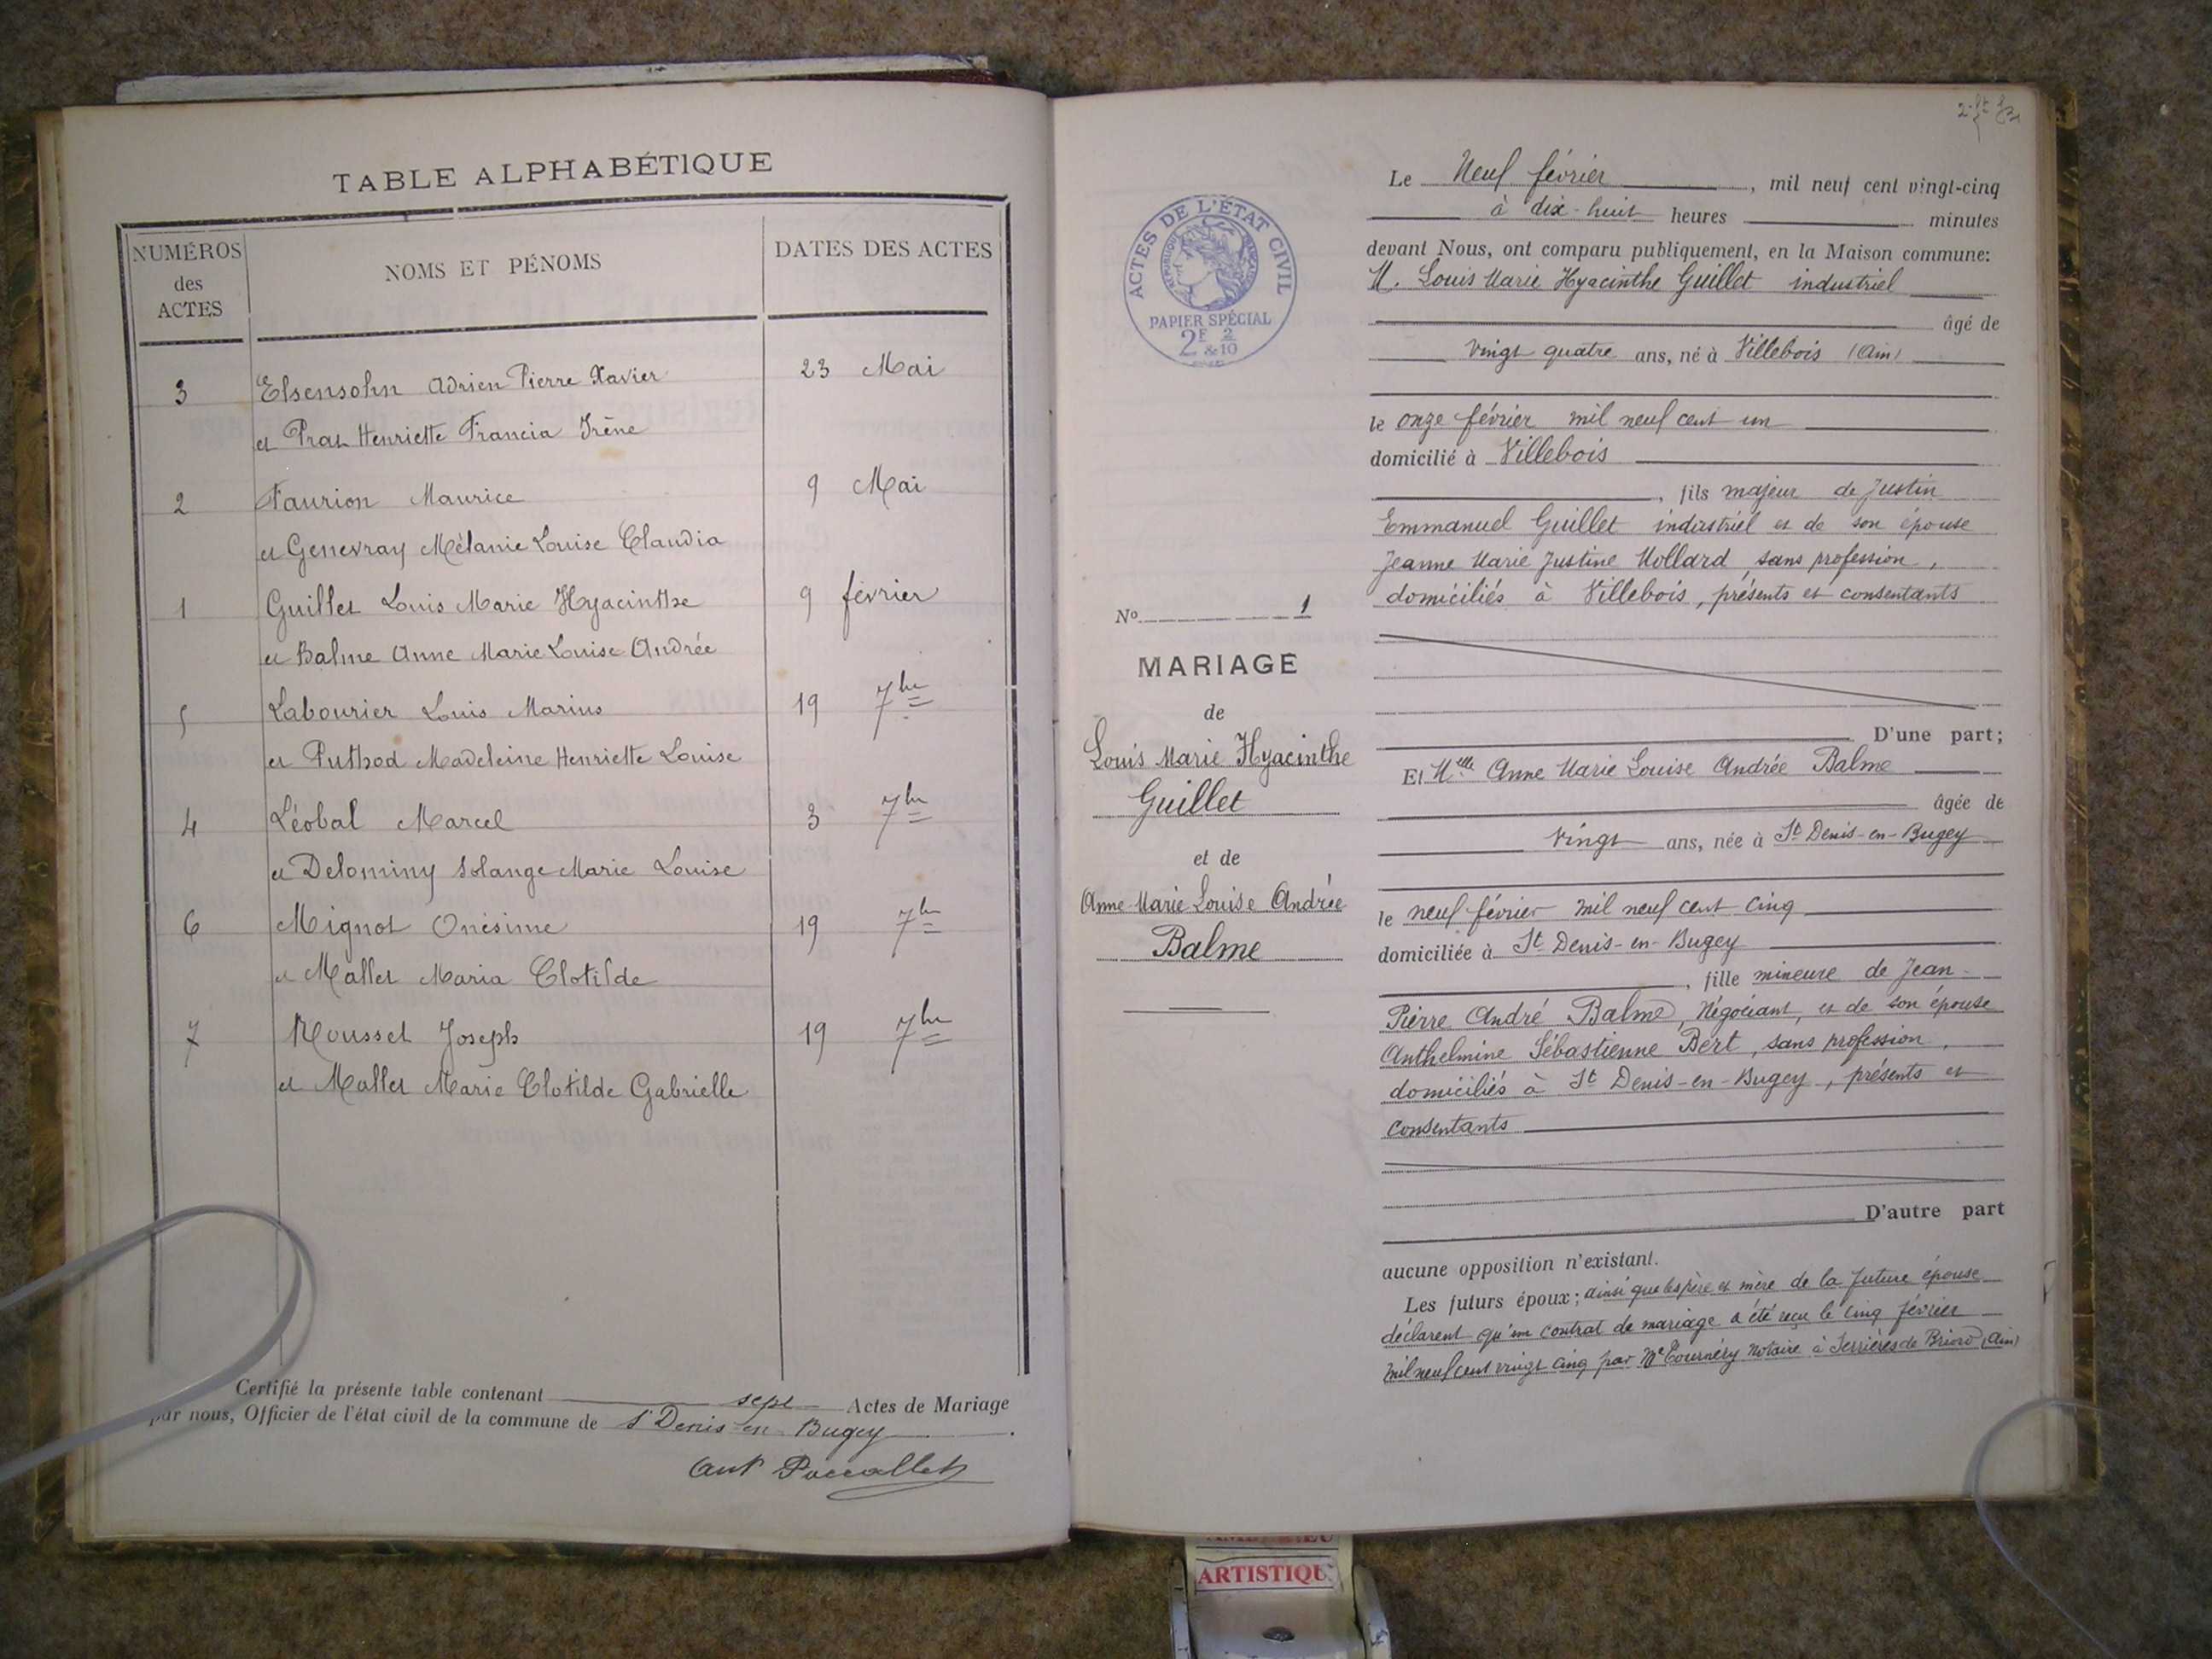 TABLE ALPHABÉTIQUE
NUMÉROS
des
ACTES
NOMS ET PÉNOMS
DATES DES ACTES
3 Elsensohn Adrien Pierre Xavier 23 Mai
et Prat Henriette Francia Irène
2 Faurion Maurice 9 Mai
et Genevray Mélanie Louise Claudia
1 Guillet Louis Marie Hyacinthe 9 février
et Balme Anne Marie Louise Andrée
5 Labourier Louis Marius 19 7bre
et Puthod Madeleine Henriette Louise
4 Léobal Marcel 3 7bre
et Delominy Solange Marie Louise
6 Mignot Onésime 19 7bre
et Mallet Maria Clotilde
7 Mousset Joseph 19 7bre
et Mallet Marie Clotilde Gabrielle
Certifié la présente table contenant sept Actes de Mariage
par nous, Officier de l'état civil de la commune de St Denis en Bugey
Ant Poccallet
ACTES DE L'ÉTAT CIVIL
RÉPUBLIQUE FRANÇAISE
PAPIER SPÉCIAL
2F 2/10
No 1
MARIAGE
de
Louis Marie Hyacinthe
Guillet
et de
Anne Marie Louise Andrée
Balme
Le Neuf février, mil neuf cent vingt-cinq
à dix-huit heures minutes
devant Nous, ont comparu publiquement, en la Maison commune:
M. Louis Marie Hyacinthe Guillet industriel
âgé de
vingt quatre ans, né à Villebois (Ain)
le onze février mil neuf cent un
domicilié à Villebois
, fils majeur de Justin
Emmanuel Guillet industriel et de son épouse
Jeanne Marie Justine Mollard, sans profession,
domiciliés à Villebois, présents et consentants
D'une part;
Et Mlle Anne Marie Louise Andrée Balme
âgée de
vingt ans, née à St Denis-en-Bugey
le neuf février mil neuf cent cinq
domiciliée à St Denis-en-Bugey
, fille mineure de Jean-
Pierre André Balme, Négociant, et de son épouse
Anthelmine Sébastienne Bert, sans profession,
domiciliés à St Denis-en-Bugey, présents et
consentants
D'autre part
aucune opposition n'existant.
Les futurs époux; ainsi que les père et mère de la future épouse
déclarent qu'un contrat de mariage a été reçu le cinq février
mil neuf cent vingt cinq par Me Tournéry Notaire à Serrières de Briord (Ain)
ARTISTIQU